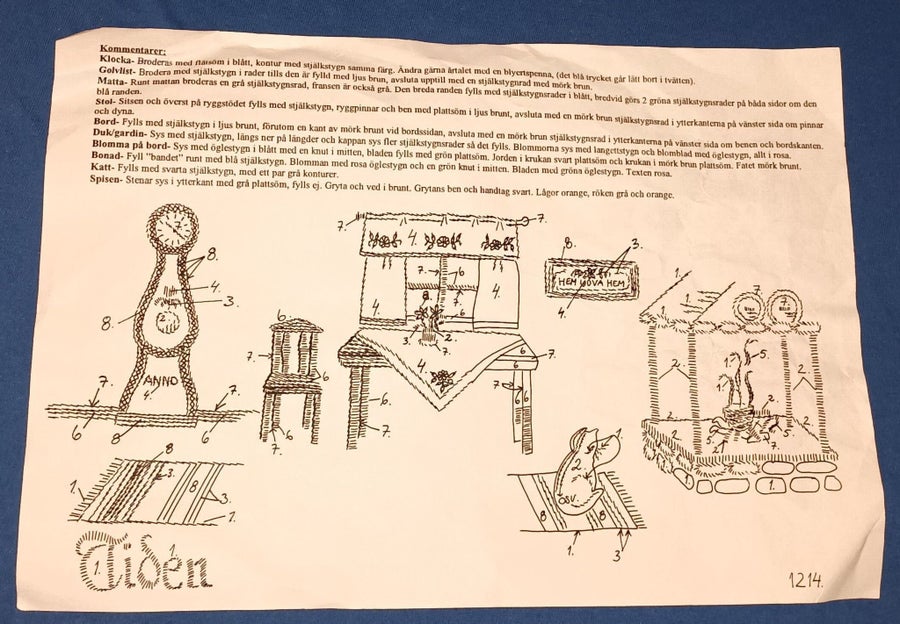 Kommentarer:
Klocka- Broderas med plattsöm i blått, kontur med stjälkstygn samma färg. Ändra gärna årtalet med en blyertspenna, (det blå trycket går lätt bort i tvätten).
Golvlist- Brodera med stjälkstygn i rader tills den är fylld med ljus brun, avsluta upptill med en stjälkstygnsrad med mörk brun.
Matta- Runt mattan broderas en grå stjälkstygnsrad, fransen är också grå. Den breda randen fylls med stjälkstygnsrader i blått, bredvid görs 2 gröna stjälkstygnsrader på båda sidor om den
blå randen.
Stol- Sitsen och överst på ryggstödet fylls med stjälkstygn, ryggpinnar och ben med plattsöm i ljus brunt, avsluta med en mörk brun stjälkstygnsrad i ytterkanterna på vänster sida om pinnar
och dyna.
Bord- Fylls med stjälkstygn i ljus brunt, förutom en kant av mörk brunt vid bordssidan, avsluta med en mörk brun stjälkstygnsrad i ytterkanterna på vänster sida om benen och bordskanten.
Duk/gardin- Sys med stjälkstygn, längs ner på längder och kappan sys fler stjälkstygnsrader så det fylls. Blommorna sys med langettstygn och blomblad med öglestygn, allt i rosa.
Blomma på bord- Sys med öglestygn i blått med en knut i mitten, bladen fylls med grön plattsöm. Jorden i krukan svart plattsöm och krukan i mörk brun plattsöm. Fatet mörk brunt.
Bonad- Fyll "bandet" runt med blå stjälkstygn. Blomman med rosa öglestygn och en grön knut i mitten. Bladen med gröna öglestygn. Texten rosa.
Katt- Fylls med svarta stjälkstygn, med ett par grå konturer.
Spisen- Stenar sys i ytterkant med grå plattsöm, fylls ej. Gryta och ved i brunt. Grytans ben och handtag svart. Lågor orange, röken grå och orange.
7. 7.
7. 8. 4. 8. 3.
8. 4. 3. 7. 6 4. 4. HEM LJUVA HEM 1. 7. 7.
8. 2. 6. 8. 6 4.
7. 3. 2. 7. 6 7.
ANNO
4.
7. 7. 6 4. 7 6 6 2. 1. 5. 2.
6 8 6 7. 6 6. 7. 2. 5. 2. 7. 2.
8 3. 1.
1. 8 3. 2. OSV. 1.
1. 8 8
1. 3
1. Tiden 1.
1214.